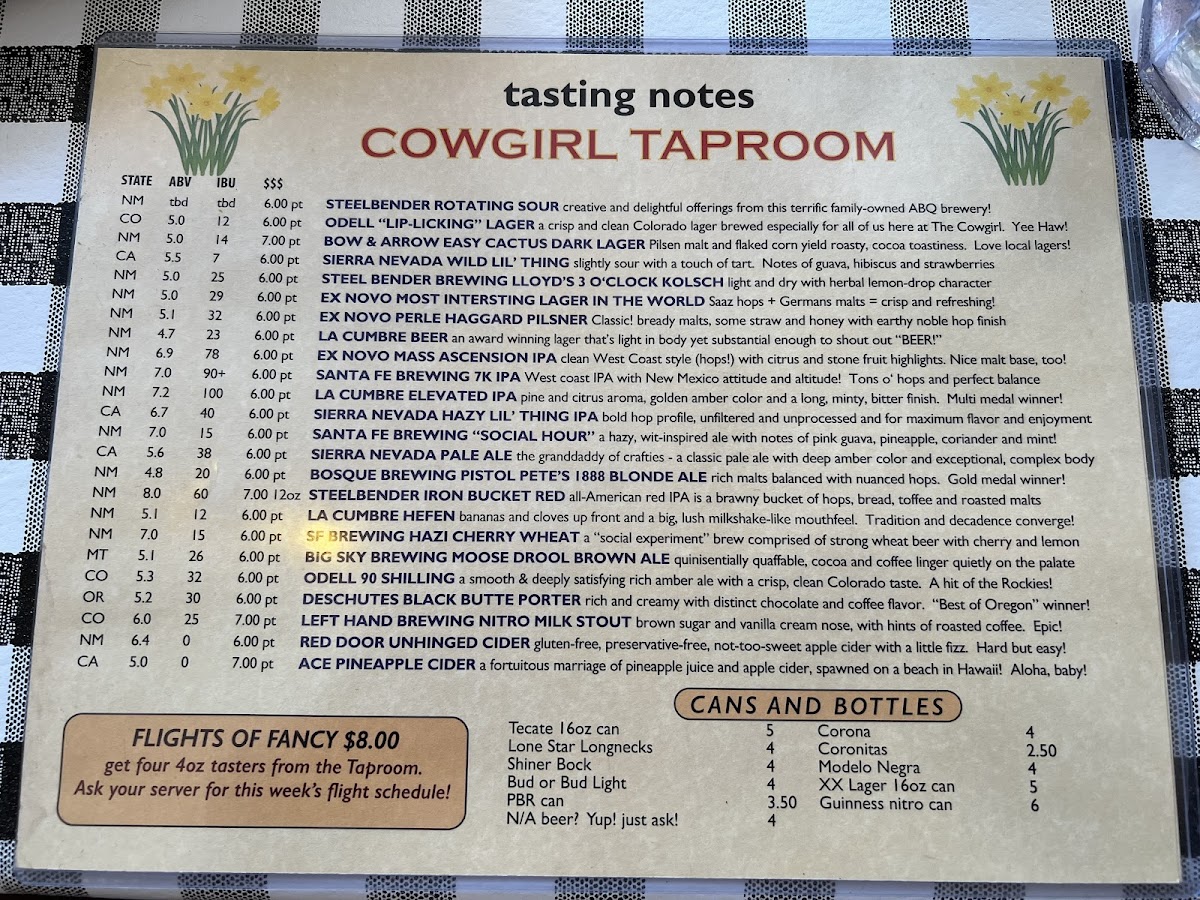 tasting notes
COWGIRL TAPROOM
STATE ABV IBU $$$
NM tbd tbd 6.00 pt STEELBENDER ROTATING SOUR creative and delightful offerings from this terrific family-owned ABQ brewery!
CO 5.0 12 6.00 pt ODELL “LIP-LICKING” LAGER a crisp and clean Colorado lager brewed especially for all of us here at The Cowgirl. Yee Haw!
NM 5.0 14 7.00 pt BOW & ARROW EASY CACTUS DARK LAGER Pilsen malt and flaked corn yield roasty, cocoa toastiness. Love local lagers!
CA 5.5 7 6.00 pt SIERRA NEVADA WILD LIL’ THING slightly sour with a touch of tart. Notes of guava, hibiscus and strawberries
NM 5.0 25 6.00 pt STEEL BENDER BREWING LLOYD’S 3 O‘CLOCK KOLSCH light and dry with herbal lemon-drop character
NM 5.0 29 6.00 pt EX NOVO MOST INTERSTING LAGER IN THE WORLD Saaz hops + Germans malts = crisp and refreshing!
NM 5.1 32 6.00 pt EX NOVO PERLE HAGGARD PILSNER Classic! bready malts, some straw and honey with earthy noble hop finish
NM 4.7 23 6.00 pt LA CUMBRE BEER an award winning lager that’s light in body yet substantial enough to shout out “BEER!”
NM 6.9 78 6.00 pt EX NOVO MASS ASCENSION IPA clean West Coast style (hops!) with citrus and stone fruit highlights. Nice malt base, too!
NM 7.0 90+ 6.00 pt SANTA FE BREWING 7K IPA West coast IPA with New Mexico attitude and altitude! Tons o‘ hops and perfect balance
NM 7.2 100 6.00 pt LA CUMBRE ELEVATED IPA pine and citrus aroma, golden amber color and a long, minty, bitter finish. Multi medal winner!
CA 6.7 40 6.00 pt SIERRA NEVADA HAZY LIL’ THING IPA bold hop profile, unfiltered and unprocessed and for maximum flavor and enjoyment
NM 7.0 15 6.00 pt SANTA FE BREWING “SOCIAL HOUR” a hazy, wit-inspired ale with notes of pink guava, pineapple, coriander and mint!
CA 5.6 38 6.00 pt SIERRA NEVADA PALE ALE the granddaddy of crafties - a classic pale ale with deep amber color and exceptional, complex body
NM 4.8 20 6.00 pt BOSQUE BREWING PISTOL PETE’S 1888 BLONDE ALE rich malts balanced with nuanced hops. Gold medal winner!
NM 8.0 60 7.00 12oz STEELBENDER IRON BUCKET RED all-American red IPA is a brawny bucket of hops, bread, toffee and roasted malts
NM 5.1 12 6.00 pt LA CUMBRE HEFEN bananas and cloves up front and a big, lush milkshake-like mouthfeel. Tradition and decadence converge!
NM 7.0 15 6.00 pt SF BREWING HAZI CHERRY WHEAT a “social experiment” brew comprised of strong wheat beer with cherry and lemon
MT 5.1 26 6.00 pt BIG SKY BREWING MOOSE DROOL BROWN ALE quinisentially quaffable, cocoa and coffee linger quietly on the palate
CO 5.3 32 6.00 pt ODELL 90 SHILLING a smooth & deeply satisfying rich amber ale with a crisp, clean Colorado taste. A hit of the Rockies!
OR 5.2 30 6.00 pt DESCHUTES BLACK BUTTE PORTER rich and creamy with distinct chocolate and coffee flavor. “Best of Oregon” winner!
CO 6.0 25 7.00 pt LEFT HAND BREWING NITRO MILK STOUT brown sugar and vanilla cream nose, with hints of roasted coffee. Epic!
NM 6.4 0 6.00 pt RED DOOR UNHINGED CIDER gluten-free, preservative-free, not-too-sweet apple cider with a little fizz. Hard but easy!
CA 5.0 0 7.00 pt ACE PINEAPPLE CIDER a fortuitous marriage of pineapple juice and apple cider, spawned on a beach in Hawaii! Aloha, baby!
FLIGHTS OF FANCY $8.00
get four 4oz tasters from the Taproom.
Ask your server for this week’s flight schedule!
CANS AND BOTTLES
Tecate 16oz can 5
Lone Star Longnecks 4
Shiner Bock 4
Bud or Bud Light 4
PBR can 3.50
N/A beer? Yup! just ask! 4
Corona 4
Coronitas 2.50
Modelo Negra 4
XX Lager 16oz can 5
Guinness nitro can 6